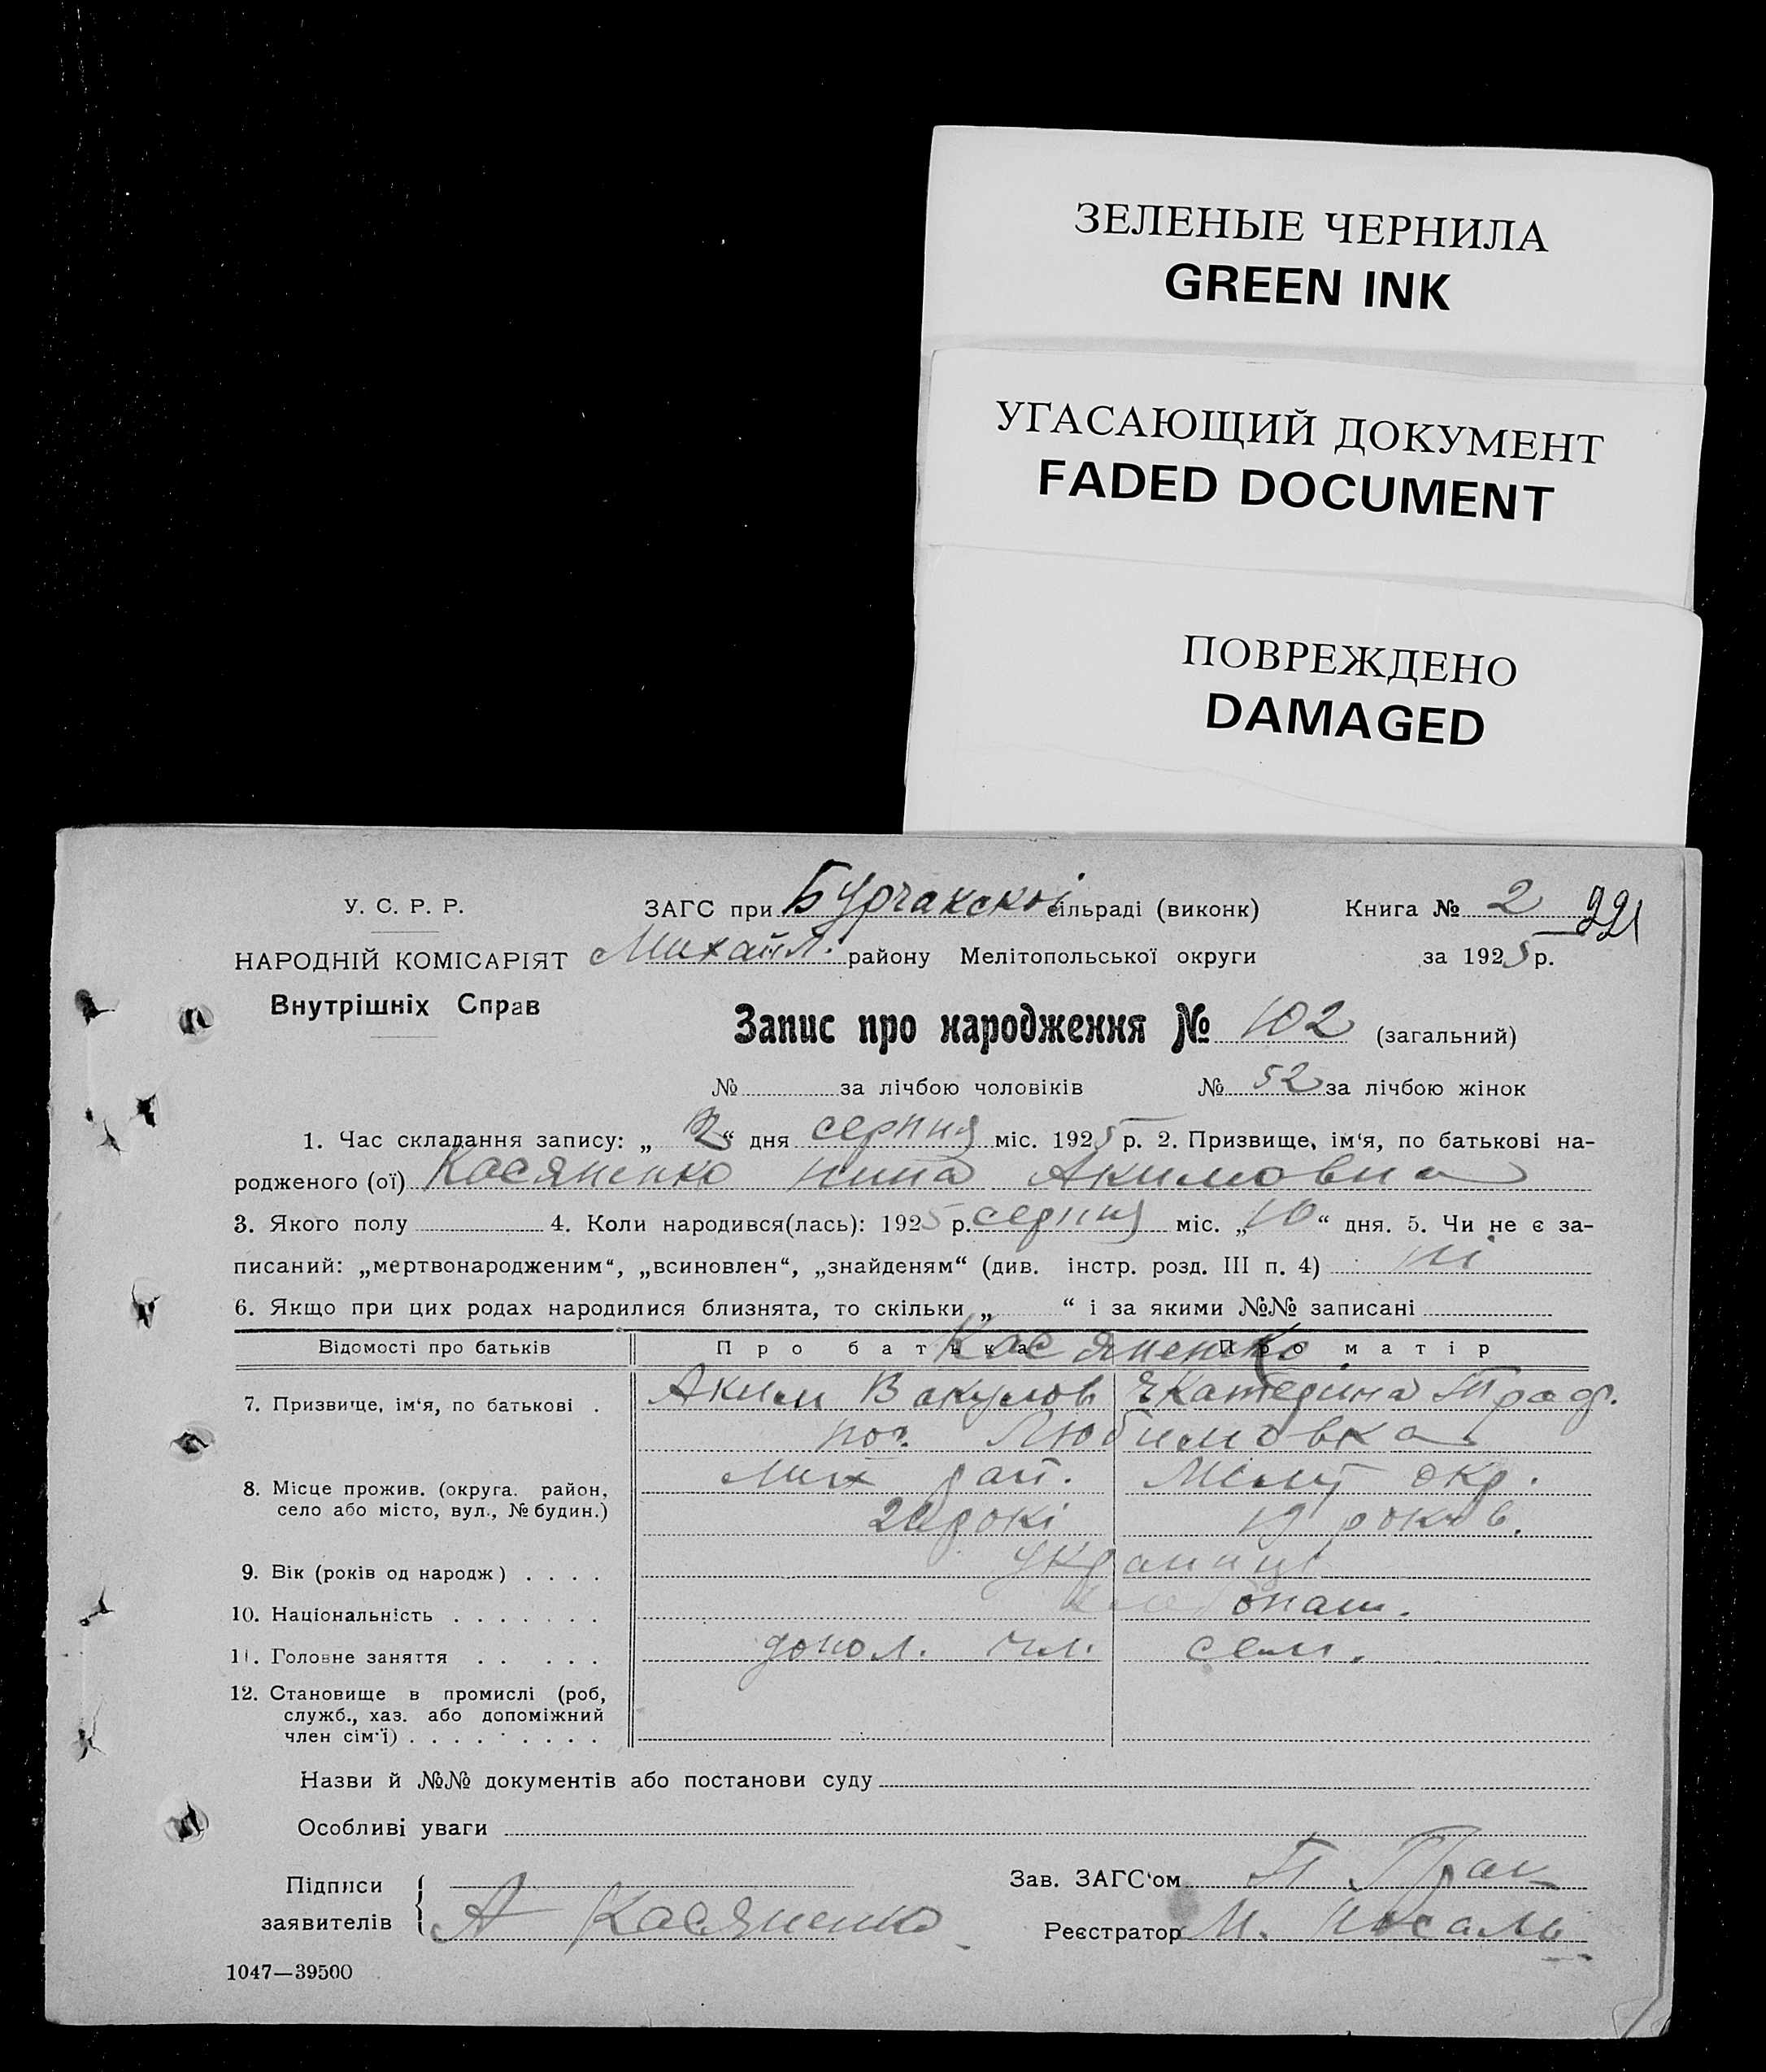 ЗЕЛЕНЫЕ ЧЕРНИЛА
GREEN INK
УГАСАЮЩИЙ ДОКУМЕНТ
FADED DOCUMENT
ПОВРЕЖДЕНО
DAMAGED
У. С. Р. Р. ЗАГС при Бурчакскоі сільраді (виконк) Книга № 2 221
НАРОДНІЙ КОМІСАРІЯТ Михайл. району Мелітопольської округи за 1925 р.
Внутрішніх Справ
Запис про народження № 102 (загальний)
№ за лічбою чоловіків № 52 за лічбою жінок
1. Час складання запису: „ “ дня серпня міс. 1925 р. 2. Призвище, ім‘я, по батькові на-
родженого (ої) Касяненко Нина Акимовна
3. Якого полу 4. Коли народився(лась): 1925 р. серпня міс. „10“ дня. 5. Чи не є за-
писаний: „мертвонародженим“, „всиновлен“, „знайденям“ (див. інстр. розд. III п. 4) ні
6. Якщо при цих родах народилися близнята, то скільки „ “ і за якими №№ записані
Касяненко
Відомості про батьків Про батька Про матір
7. Призвище, ім‘я, по батькові . Аким Вакулов Екатерина Праф.
Любимовка
8. Місце прожив. (округа. район, Мих рай. Меліт окр.
село або місто, вул., № будин.)
рокі 19 років.
9. Вік (років од народж) . . . . украинці
10. Національність . . . . . . .
11. Головне заняття . . . . . допол. чл. сем.
12. Становище в промислі (роб,
служб., хаз. або допоміжний
член сім‘ї) . . . . . . . . .
Назви й №№ документів або постанови суду
Особливі уваги
Підписи Зав. ЗАГС‘ом
заявителів А Касяненко Реєстратор М.
1047—39500